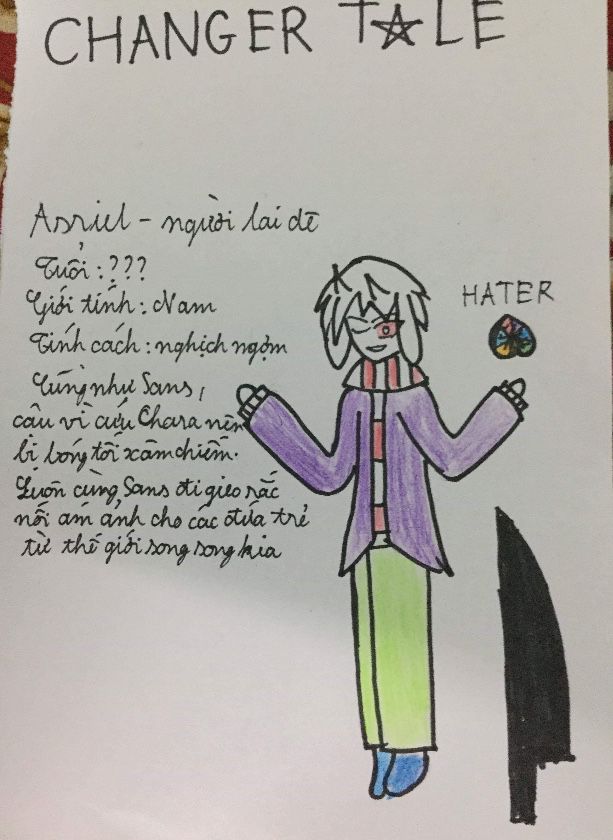 CHANGER T☆LE
Asriel - người lai dê
Tuổi : ???
Giới tính : Nam
Tính cách : nghịch ngợm
Cũng như Sans,
cậu vì cứu Chara nên
bị bóng tối xâm chiếm.
Luôn cùng Sans đi gieo rắc
nỗi ám ảnh cho các đứa trẻ
từ thế giới song song kia
HATER